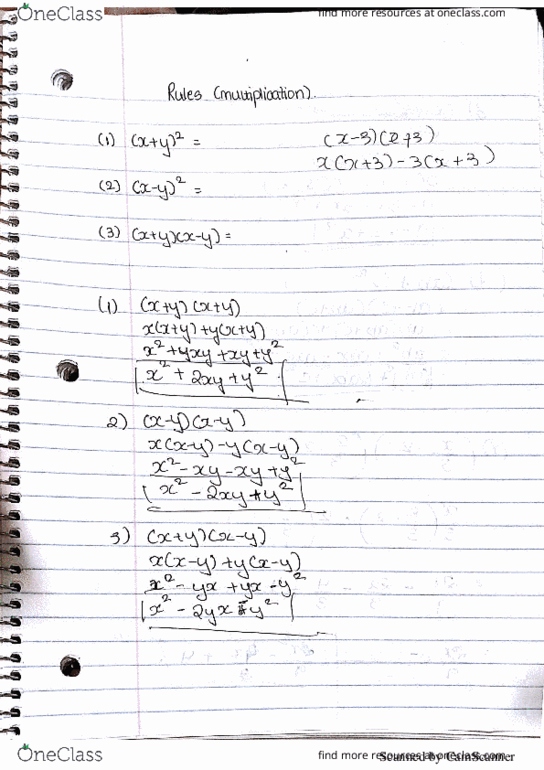 OneClass
find more resources at oneclass.com
Rules (multiplication).
(1) (x+y)² =
(x-3)(x+3)
x(x+3)-3(x+3)
(2) (x-y)² =
(3) (x+y)(x-y) =
(1) (x+y)(x+y)
x(x+y)+y(x+y)
x²+yxy+xy+y²
x²+2xy+y²
2) (x-y)(x-y)
x(x-y)-y(x-y)
x²-xy-xy+y²
x²-2xy+y²
3) (x+y)(x-y)
x(x-y)+y(x-y)
x²-yx+yx-y²
x²-2yx-y²
OneClass
find more resources at oneclass.com
Scanned by CamScanner